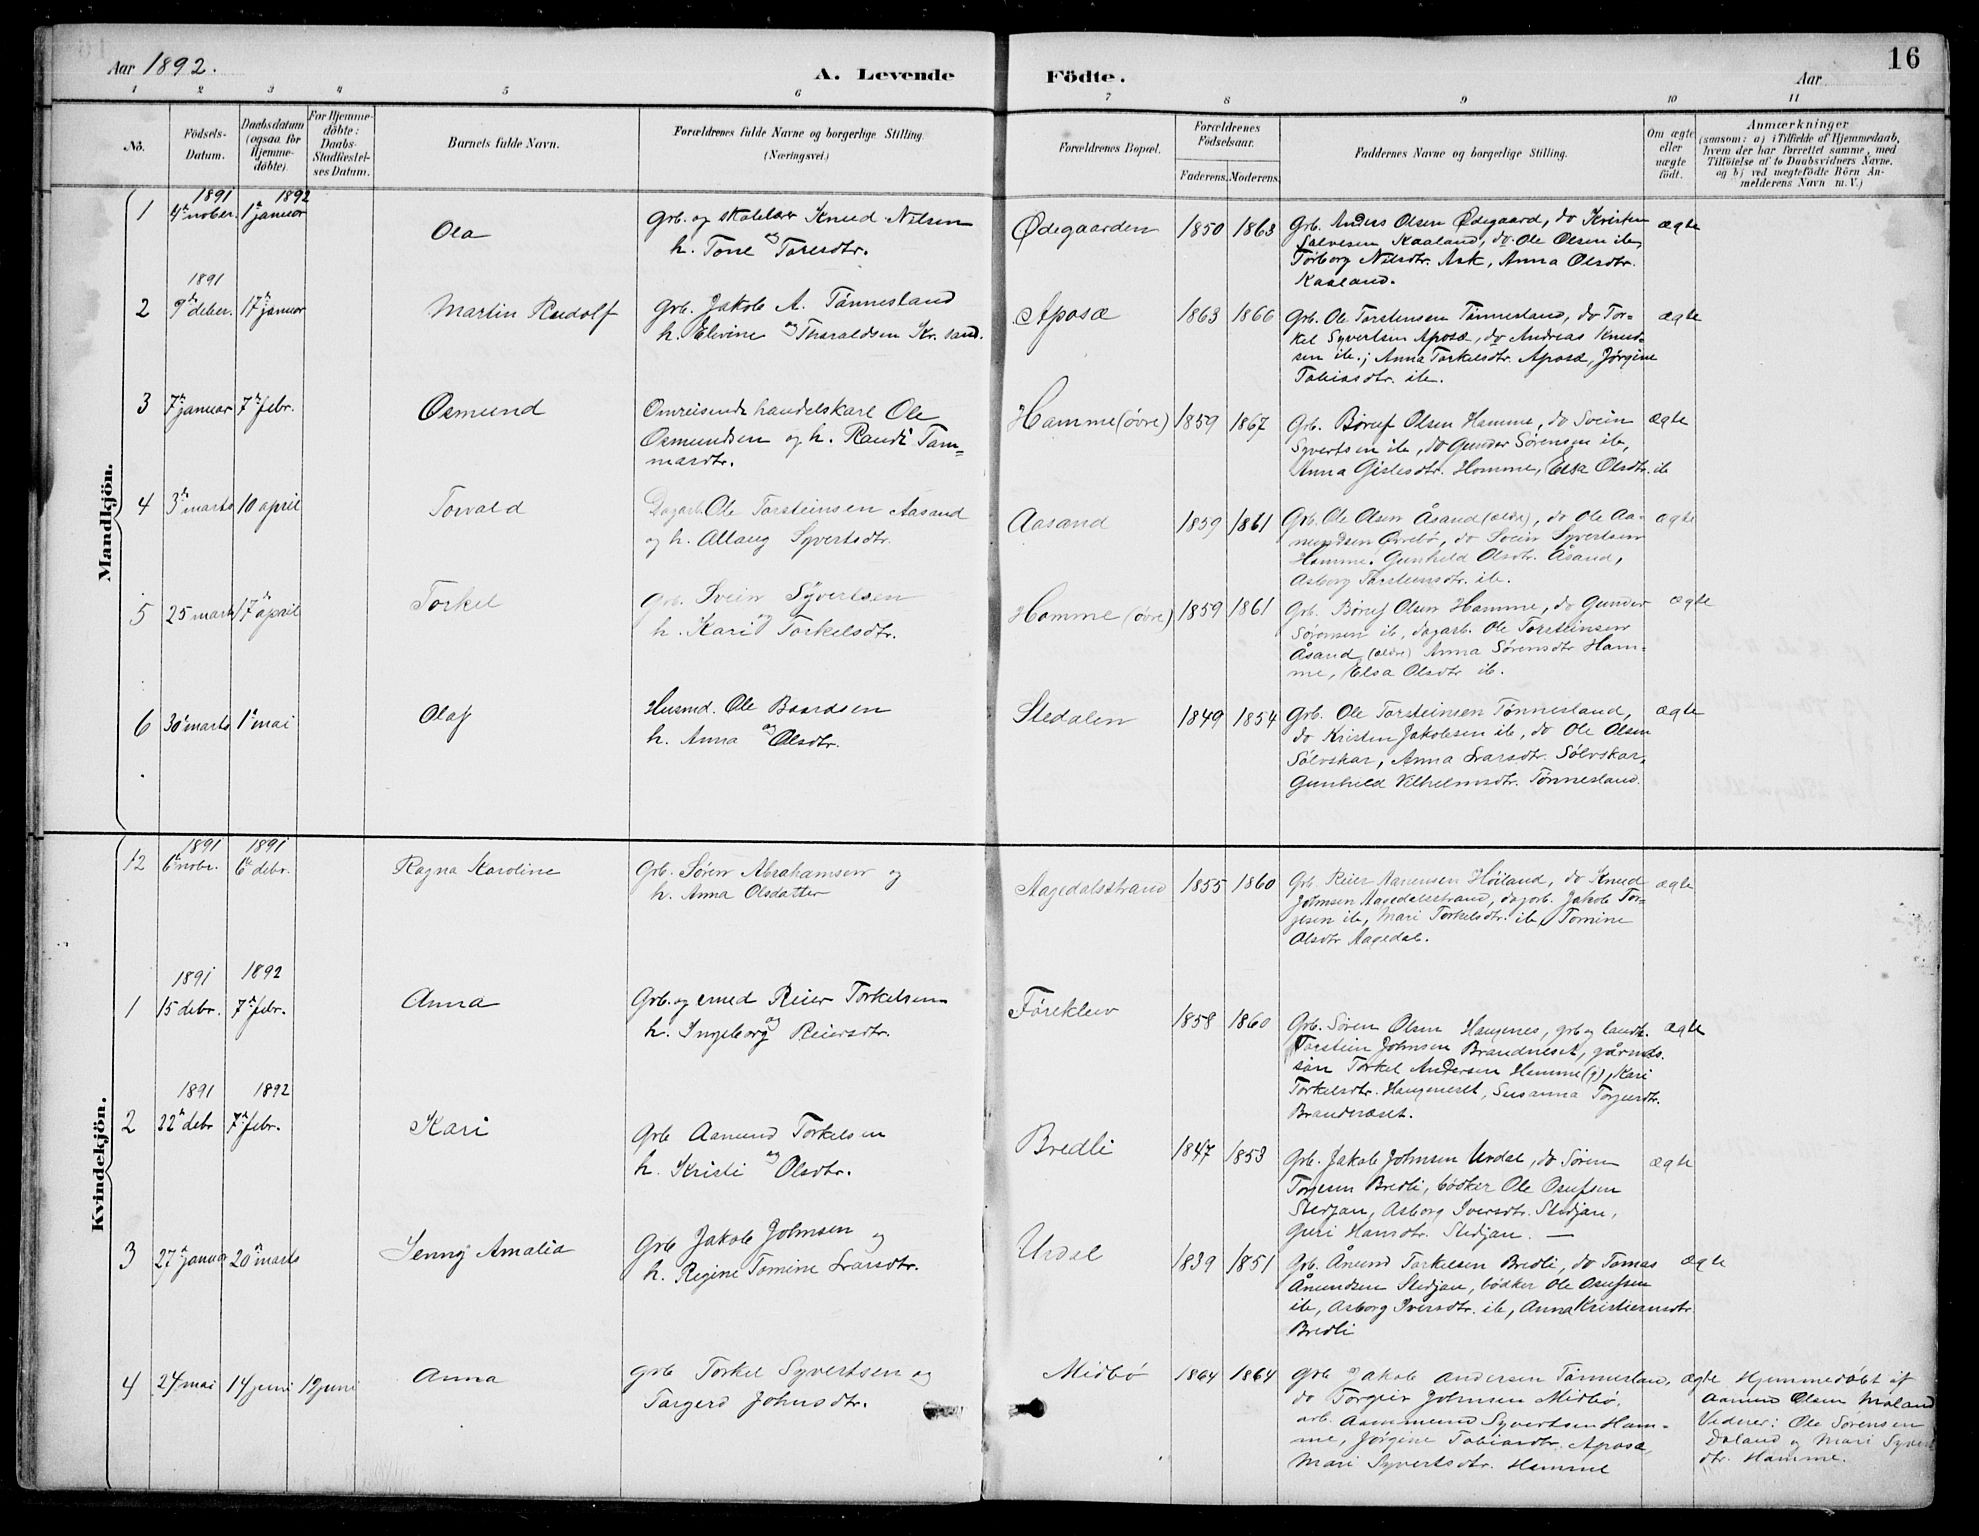 Aar 1892.
A. Levende Födte.
Aar
16
1 2 3 4 5 6 7 8 9 10 11
No.
Födsels-Datum.
Daabsdatum (ogsaa for Hjemme-döbte).
For Hjemme-döbte: Daabs-Stadfæstel-ses Datum.
Barnets fulde Navn.
Forældrenes fulde Navne og borgerlige Stilling (Næringsvei.)
Forældrenes Bopæl.
Forældrenes Födselsaar.
Faderens. Moderens.
Faddernes Navne og borgerlige Stilling.
Om ægte eller uægte födt.
Anmærkninger
(saasom: a) i Tilfælde af Hjemmedaab,
hvem der har forrettet samme, med
Tilföielse af to Daabsvidners Navne.
og b) ved uægtefödte Börn An-
melderens Navn m. V.)
Mandkjön.
1 1891 4de nober. 1892 1ste januar
Ola
Grb. og skolelær Knud Nilsen
og
h. Tone Taresdtr.
Ødegaarden 1850 1863
Grb. Anders Olsen Ødegaard, do Kristen
Salvesen Kaaland, do. Ole Olsen ib,
Torborg Nilsdtr. Ask, Anna Olsdtr.
Kaaland.
ægte
2 1891 9de deber. 17de januar
Martin Rudolf
Grb. Jakob A. Tønnesland
h. Elvine og Tharaldsen Kr. sand.
Aposæ 1863 1866
Grb. Ole Torstensen Tønnesland, do Tor-
kel Syvertsen Aposæ, do Andreas Knud-
sen ib.; Anna Torkelsdtr. Aposæ, Jørgine
Tobiasdtr. ib.
ægte
3 7de januar 7de febr.
Osmund
Omreisende handelskarl Ole
Osmundsen og h. Randi Tam-
mesdtr.
Homme (øvre) 1859 1867
Grb. Børuf Olsen Homme, do Svein
Syvertsen ib, do Gunder Sørensen ib,
Anna Gislesdtr. Homme, Elsa Olsdtr. ib
ægte
4 3de marts 10 april
Torvald
Dagarb. Ole Torsteinsen Aasand
og h. Allaug Syvertsdtr.
Aasand 1859 1861
Grb. Ole Olsen Åsand (ældre), do Ole Aa-
nundsen Øvrebø, do Svein Syvertsen
Homme. Gunhild Olsdtr. Åsand,
Asborg Torsteinsdtr. ib.
ægte
5 25 marts 17de april
Torkel
Grb. Svein Syvertsen
og
h. Kari Torkelsdtr.
Homme (øvre) 1859 1861
Grb. Børuf Olsen Homme, do Gunder
Sørensen ib, dagarb. Ole Torsteinsen
Åsand (ældre) Anna Sørensdtr Hom-
me, Elsa Olsdtr ib.
ægte
6 30 marts 1ste mai
Olaf
Husmd. Ole Baardsen
og
h. Anna Olsdtr.
Stedalen 1849 1854
Grb. Ole Torsteinsen Tønnesland,
do Kristen Jakobsen ib, do Ole Olsen
Sølvskar, Anna Larsdtr. Sølvskar,
Gunhild Vilhelmsdtr. Tønnesland.
ægte
Kvindekjön.
12 1891 6te nobr. 1891 6te debr.
Ragna Karoline
Grb. Søren Abrahamsen og
h. Anna Olsdatter
Aagedalsstrand 1855 1860
Grb. Reier Høiland, do Knud
Johnsen Aagedalsstrand, dagarb. Jakob Tor-
jesen ib, Mari Torkelsdtr. ib, Tomine
Olsdtr Aagedal.
ægte
1 1891 15 debr. 1892 7de febr.
Anna
Grb. og smed Reier Torkelsen
og
h. Ingeborg Reiersdtr.
Føreklev 1858 1860
Grb. Søren Olsen Haugenes, grb og landh.
Torstein Johnsen Brandneset, gårmds.
søn Torkel Andersen Homme (g), Kari
Torkelsdtr. Haugeneset, Susanna Torjusdtr.
Brandneset.
ægte
2 1891 22de debr 1892 7de febr.
Kari
Grb Aanund Torkelsen
og
h. Kristi Olsdtr.
Bredli 1847 1853
Grb. Jakob Johnsen Urdal, do Søren
Torjesen Bredli, bødker Ole Osufsen
Stedjan, Asborg Iversdtr. Stedjan,
Guri Hansdtr. Stedjan. —
ægte
3 27de januar 20de marts
Jenny Amalia
Grb Jakob Johnsen og
h. Regine Tomine Larsdtr.
Urdal 1839 1851
Grb. Ånund Torkelsen Bredli, do Tomas
Ånundsen Stedjan, bødker Ole Osufsen
ib, Asborg Iversdtr. ib, Anna Kristiensdtr.
Bredli
ægte
4 24 mai 14 juni 19 juni
Anna
Grb Torkel Syvertsen og
Targerd Johnsdtr.
Midbø 1864 1864
Grb Jakob Andersen Tønnesland,
do Torgeir Johnsen Midbø,
arb. Aanmund Syvertsen Hom-
me, Jørgine Tobiasdtr. Aposæ,
Mari Syvertsdtr. Homme
ægte
Hjemmedøbt af
Aanund Olsen Moland
Vidner: Ole Sørensen
Døland og Mari Syverts-
dtr. Homme.